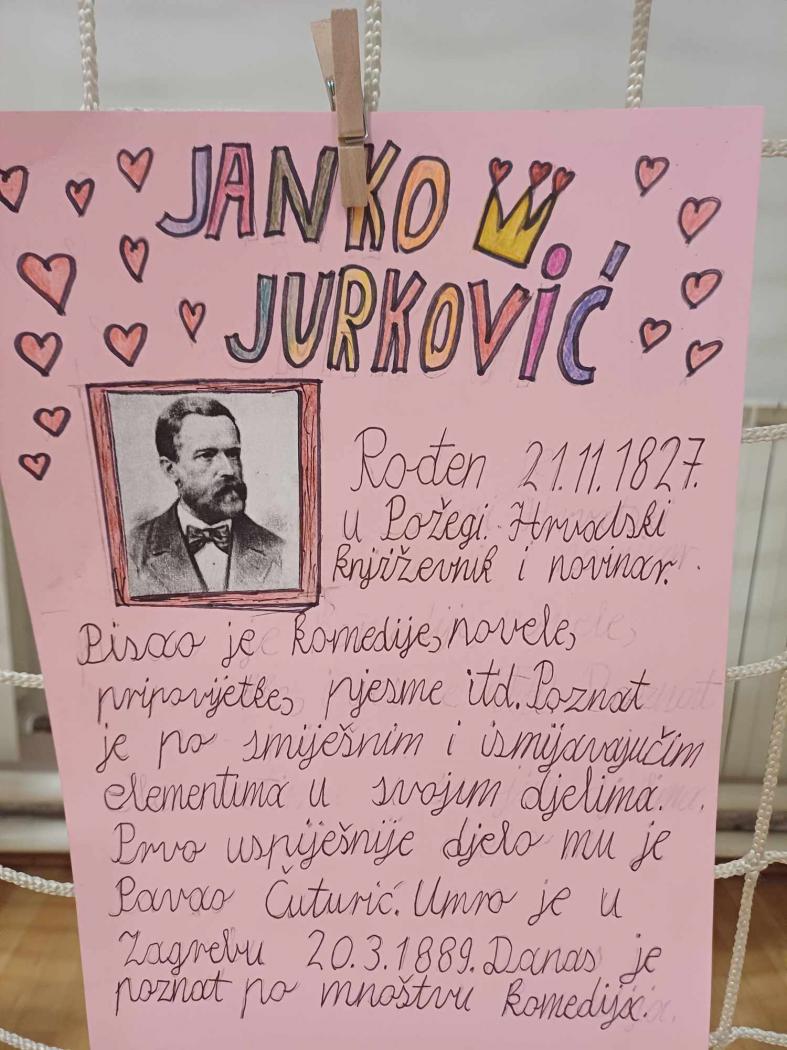 JANKO
JURKOVIĆ
Rođen 21.11.1827.
u Požegi. Hrvatski
književnik i novinar.
Pisao je komedije, novele,
pripovijetke, pjesme itd. Poznat
je po smiješnim i ismijavajućim
elementima u svojim djelima.
Prvo uspiješnije djelo mu je
Pavao Čuturić. Umro je u
Zagrebu 20.3.1889. Danas je
poznat po mnoštvu komedija.